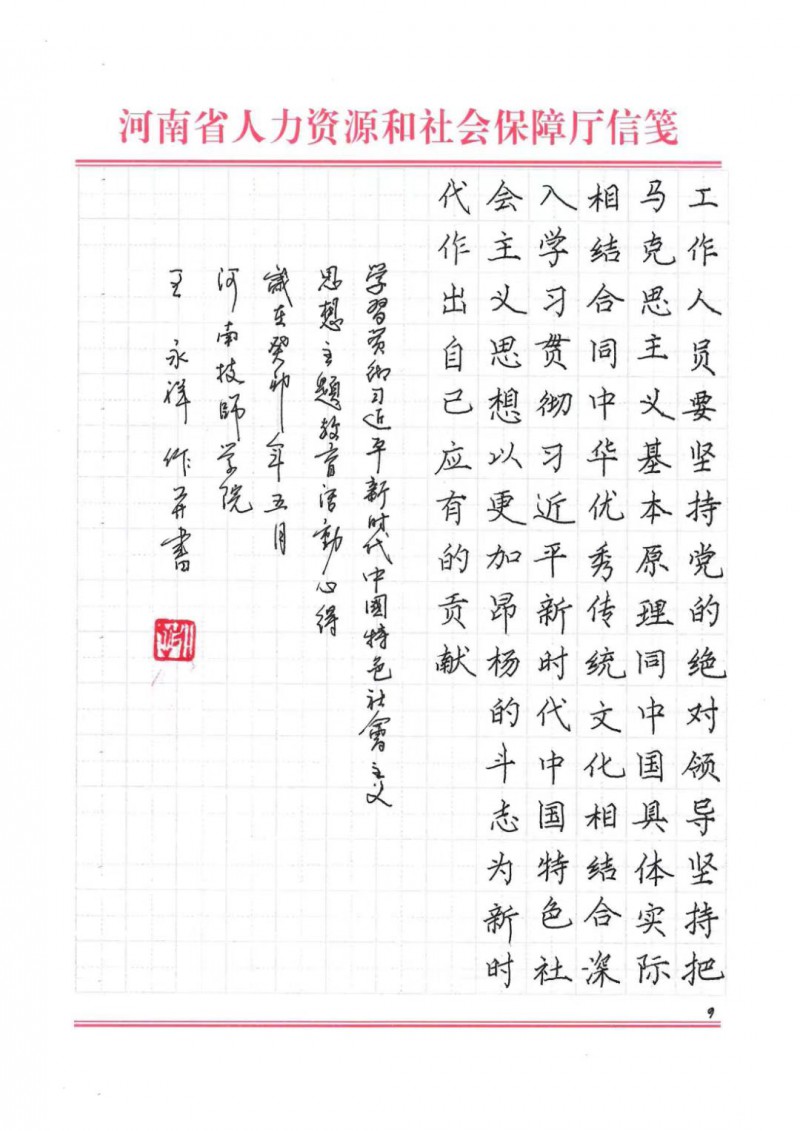 河南省人力资源和社会保障厅信笺
工作人员要坚持党的绝对领导坚持把
马克思主义基本原理同中国具体实际
相结合同中华优秀传统文化相结合深
入学习贯彻习近平新时代中国特色社
会主义思想以更加昂杨的斗志为新时
代作出自己应有的贡献
学习贯彻习近平新时代中国特色社會主义
思想主题教育活動心得
歲在癸卯年五月
河南技師学院
王永祥作并書
9